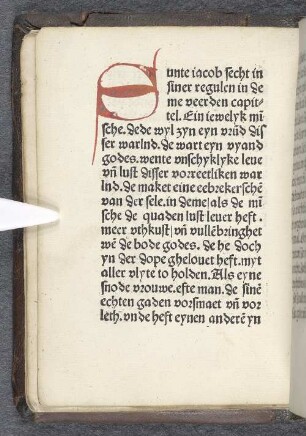 Sunte iacob secht in
siner regulen in de
me veerden capit-
tel. Ein iewelyk mī
sche. dede wyl zyn eyn vrūd dis
ser warlnd. de wart eyn vyand
godes. wente vnschyklyke leue
vñ lust disser vorreetliken war
lnd. de maket eine eebrekerschē
van der sele. in deme|als de mī
sche de quaden lust leuer heft.
meer vthkust| vñ vullēbringhet
wē de bode godes. de he doch
yn der dope ghelouet heft. myt
aller vlyte to holden. Als eyne
snode vrouwe. efte man. de sinē
echten gaden vorsmaet vñ vor
leth. vnde heft eynen anderē yn